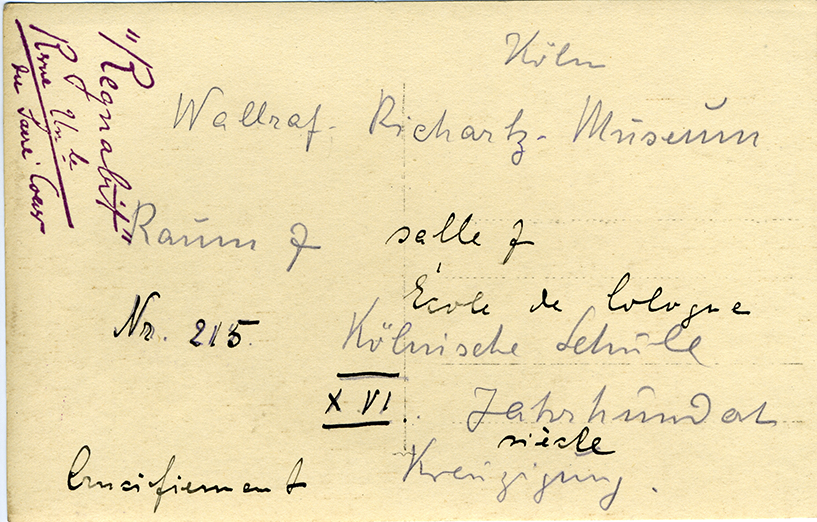 "Regnabit"
R
Revue Un.le
du Sacré-Coeur
Köln
Wallraf-Richartz-Museum
Raum 7 salle 7
École de Cologne
Nr. 215 Kölnische Schule
XVI. Jahrhundert
siècle
Crucifiement Kreuzigung.